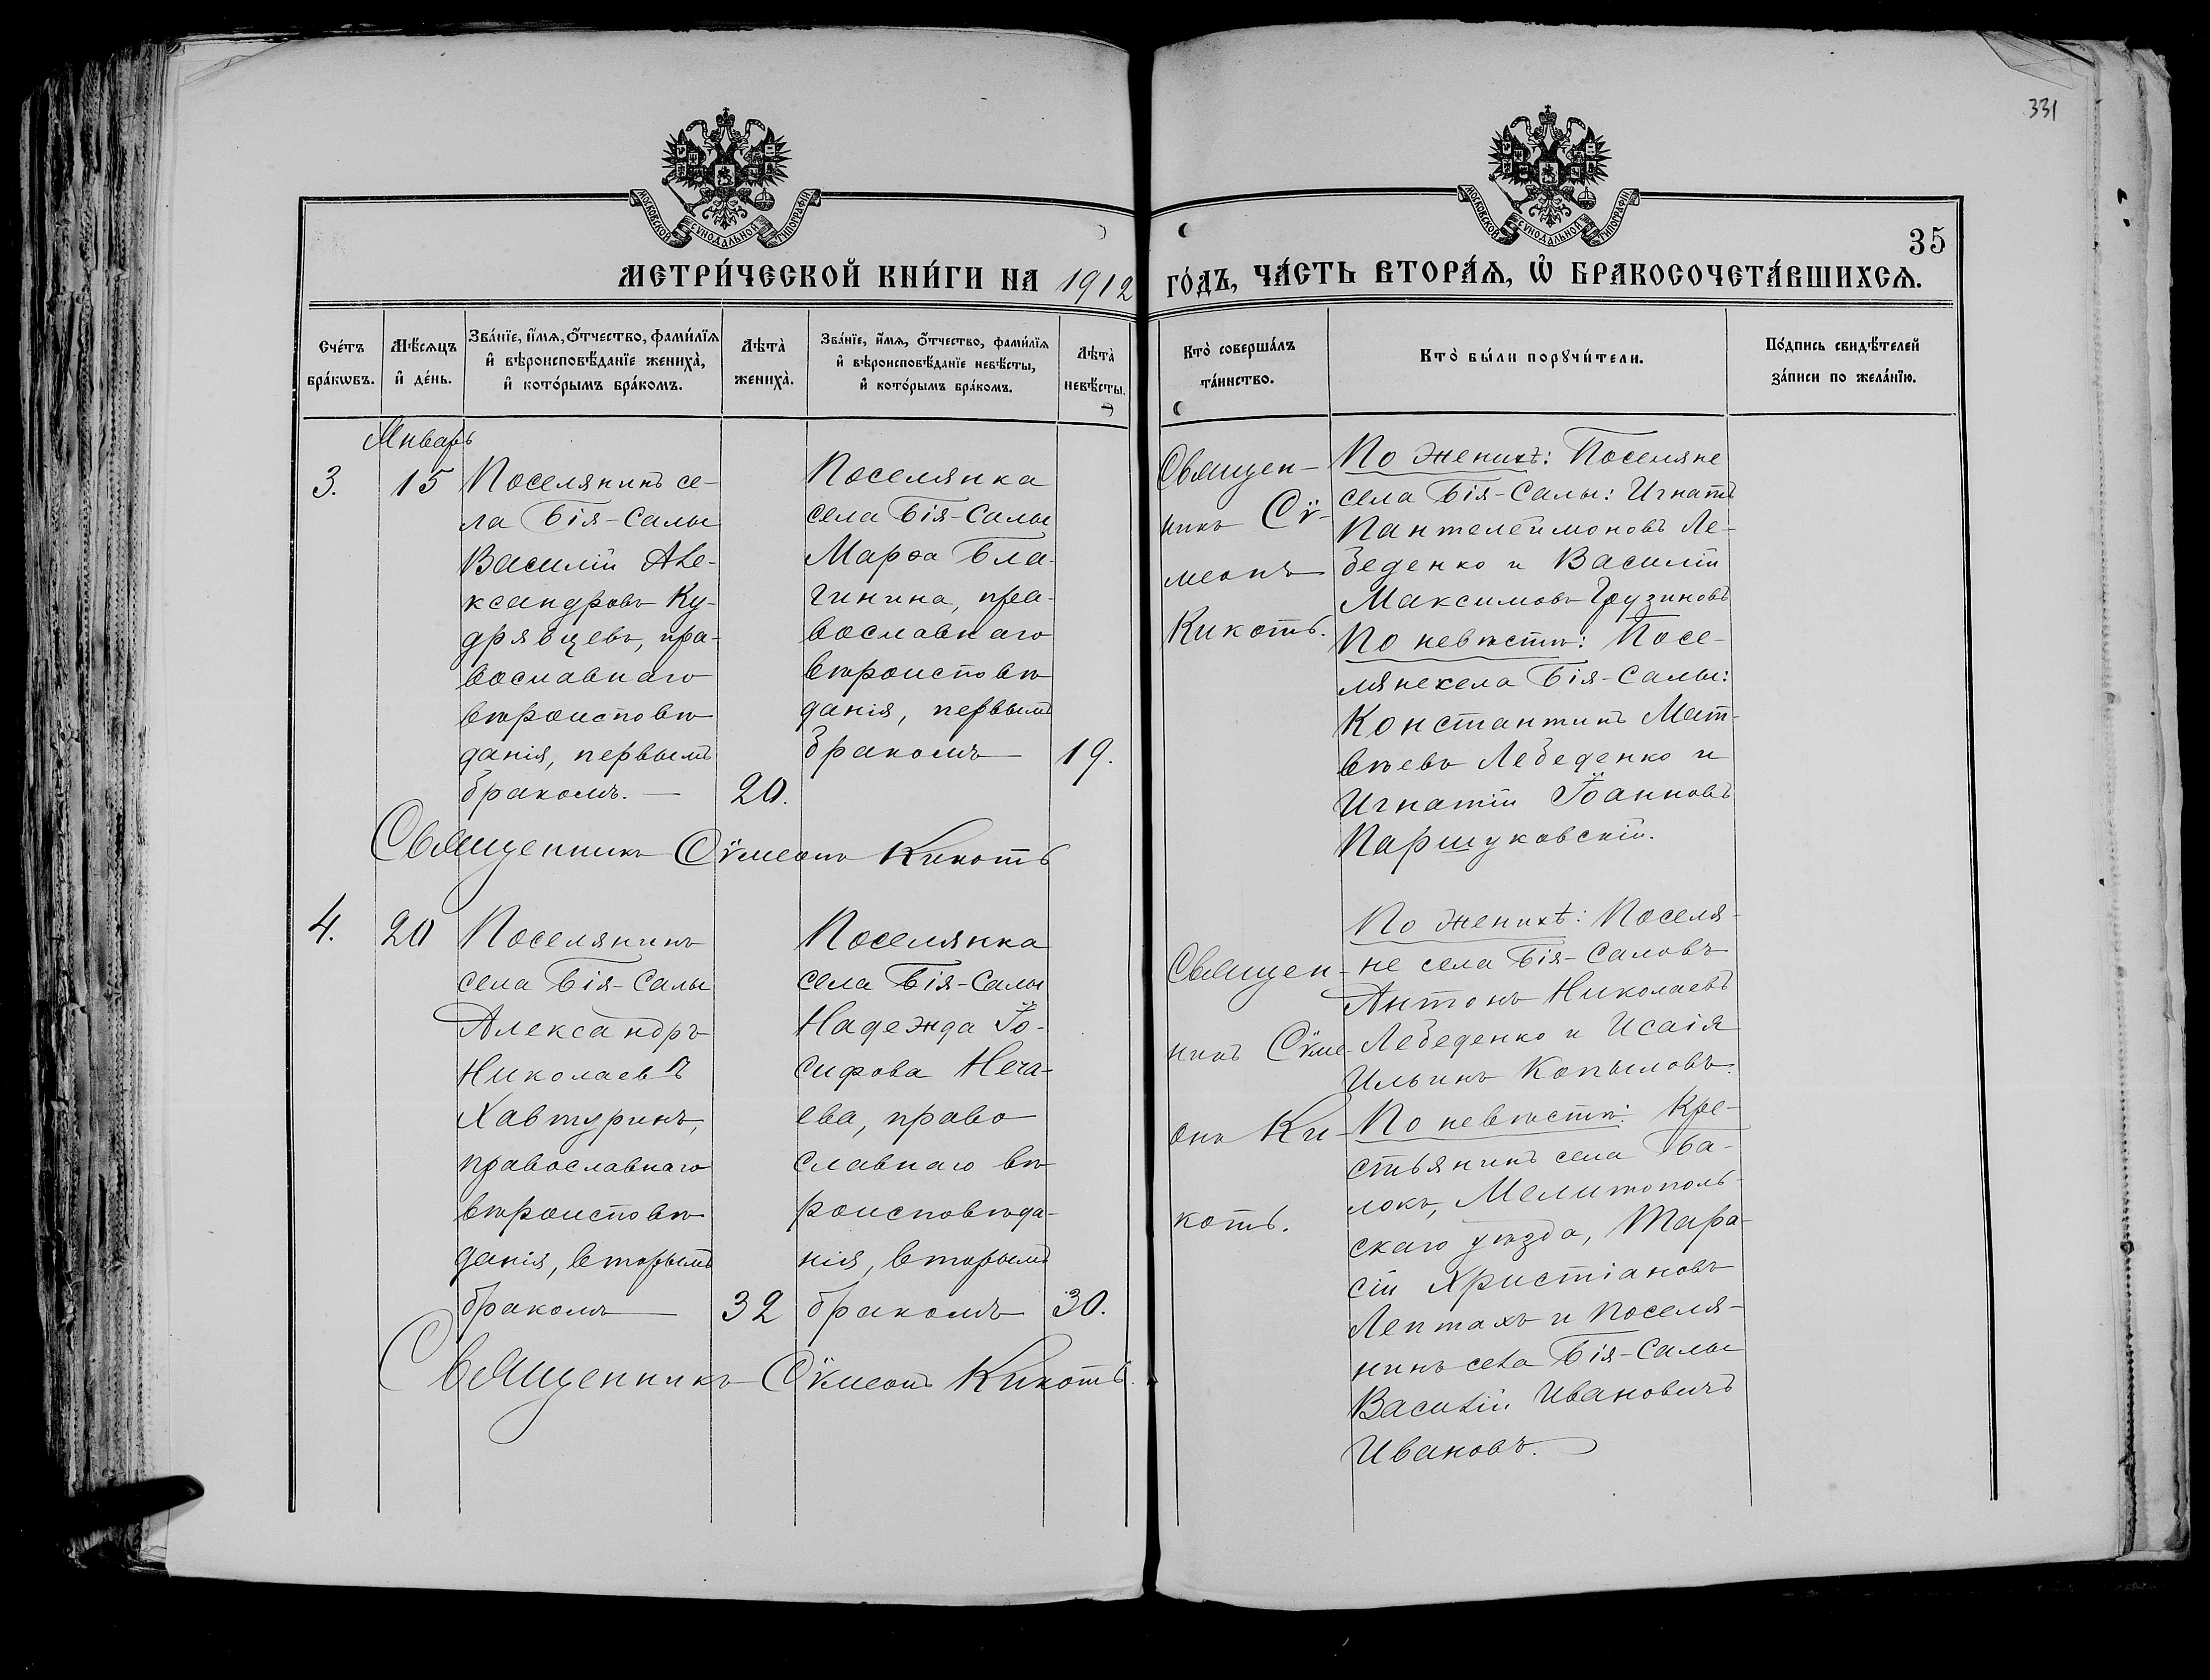 331
МОСКОВСКОЙ СУНОДАЛЬНОЙ ТИПОГРАФІИ
МОСКОВСКОЙ СУНОДАЛЬНОЙ ТИПОГРАФІИ
35
МЕТРИ́ЧЕСКОЙ КНИ́ГИ НА 1912 ГО́ДЪ, ЧА́СТЬ ВТОРА́Ѧ, Ѽ БРАКОСОЧЕТА́ВШИХСѦ.
Сче́тъ
бра́кѡвъ.
Мѣ́сѧцъ
и҆ де́нь.
Зва́нїе, и҆́мѧ, ѻ҆́тчество, фами́лїѧ
и҆ вѣроисповѣ́данїе жениха̀,
и҆ кото́рымъ бра́комъ.
Лѣта̀
жениха̀.
Зва́нїе, и҆́мѧ, ѻ҆́тчество, фами́лїѧ
и҆ вѣроисповѣ́данїе невѣ́сты,
и҆ кото́рымъ бра́комъ.
Лѣта̀
невѣ́сты.
Кто̀ соверша́лъ
та́инство.
Кто̀ бы́ли порꙋчи́тели.
По́дпись свидѣ́телей
за́писи по жела́нїю.
Январь
3.
15
Поселянинъ се-
ла Бія-Салы
Василій Але-
ксандровъ Ку-
дрявцевъ, пра-
вославнаго
вѣроисповѣ
данія, первымъ
бракомъ. —
20.
Поселянка
села Бія-Салы
Марѳа Бла-
гинина, пра-
вославнаго
вѣроисповѣ
данія, первымъ
бракомъ —
19.
Священ-
никъ Сѵ-
меонъ
Кикоть.
По женихѣ: Поселяне
села Бія-Салы: Игнатъ
Пантелеймоновъ Ле-
беденко и Василій
Максимовъ Грузиновъ
По невѣстѣ: Посе-
лянехела Бія-Салы:
Константинъ Мат-
вѣевъ Лебеденко и
Игнатій Іоанновъ
Паршуковскій.
Священникъ Сѵмеонъ Кикоть
4.
20
Поселянинъ
села Бія-Салы
Александръ
Николаевъ
Хавтуринъ,
православнаго
вѣроисповѣ
данія, вторымъ
бракомъ —
32
Поселянка
села Бія-Салы
Надежда Іо-
сифова Неча-
ева, право
славнаго вѣ
роисповѣда-
нія, вторымъ
бракомъ
30.
Священ-
никъ Сѵме-
онъ Ки-
коть.
По женихѣ: Поселя-
не села Бія-Саловъ
Антонъ Николаевъ
Лебеденко и Исаія
Ильинъ Копыловъ.
По невѣстѣ: Кре-
стьянинъ села Ба-
локъ, Мелитополь-
скаго уѣзда, Тара-
сій Христіановъ
Лептахъ и поселя-
нинъ села Бія-Салы
Василій Ивановичъ
Ивановъ.
Священникъ Сѵмеонъ Кикоть.